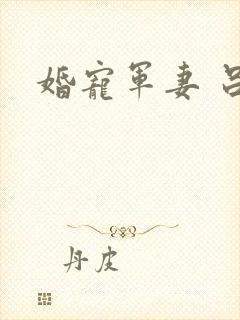 婚寵軍妻 吕
丹皮